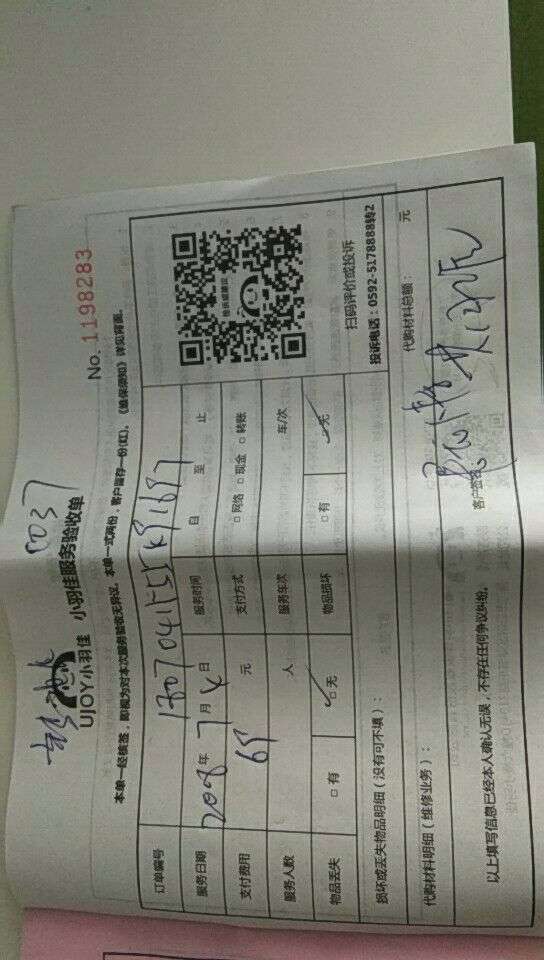 5037
UJOY小羽佳 小羽佳服务验收单
No. 1198283
本单一经核签，即视为对本次服务验收无异议。本单一式两份，客户留存一份(红)。《维保须知》详见背面。
订单编号
服务日期 年 7 月 4 日 服务时间 自 至 止
支付费用 元 支付方式 □网络 □现金 □转账
服务人数 人 服务车次 车/次
物品丢失 □有 □无 物品损坏 □有 □无
扫码评价或投诉
投诉电话：0592-5178888转2
损坏或丢失物品明细（没有可不填）：
代购材料明细（维修业务）： 代购材料总额： 元
以上填写信息已经本人确认无误，不存在任何争议纠纷。 客户签名